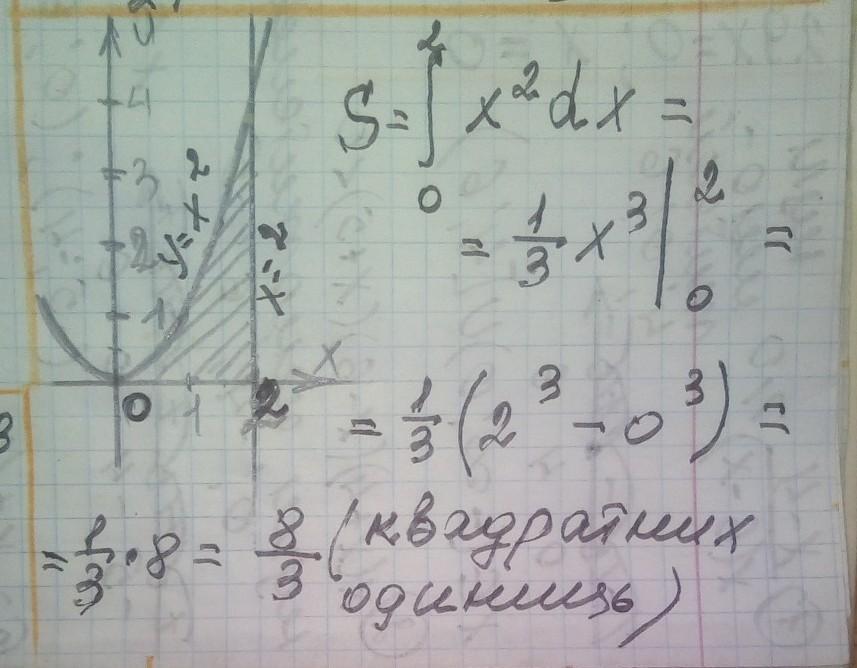 5
4
3
2
1
0 1 2
x
y = x²
x = 2
S = ∫₀² x² dx =
= 1/3 x³ |₀² =
= 1/3 (2³ - 0³) =
= 1/3 · 8 = 8/3 (квадратних
одиниць)